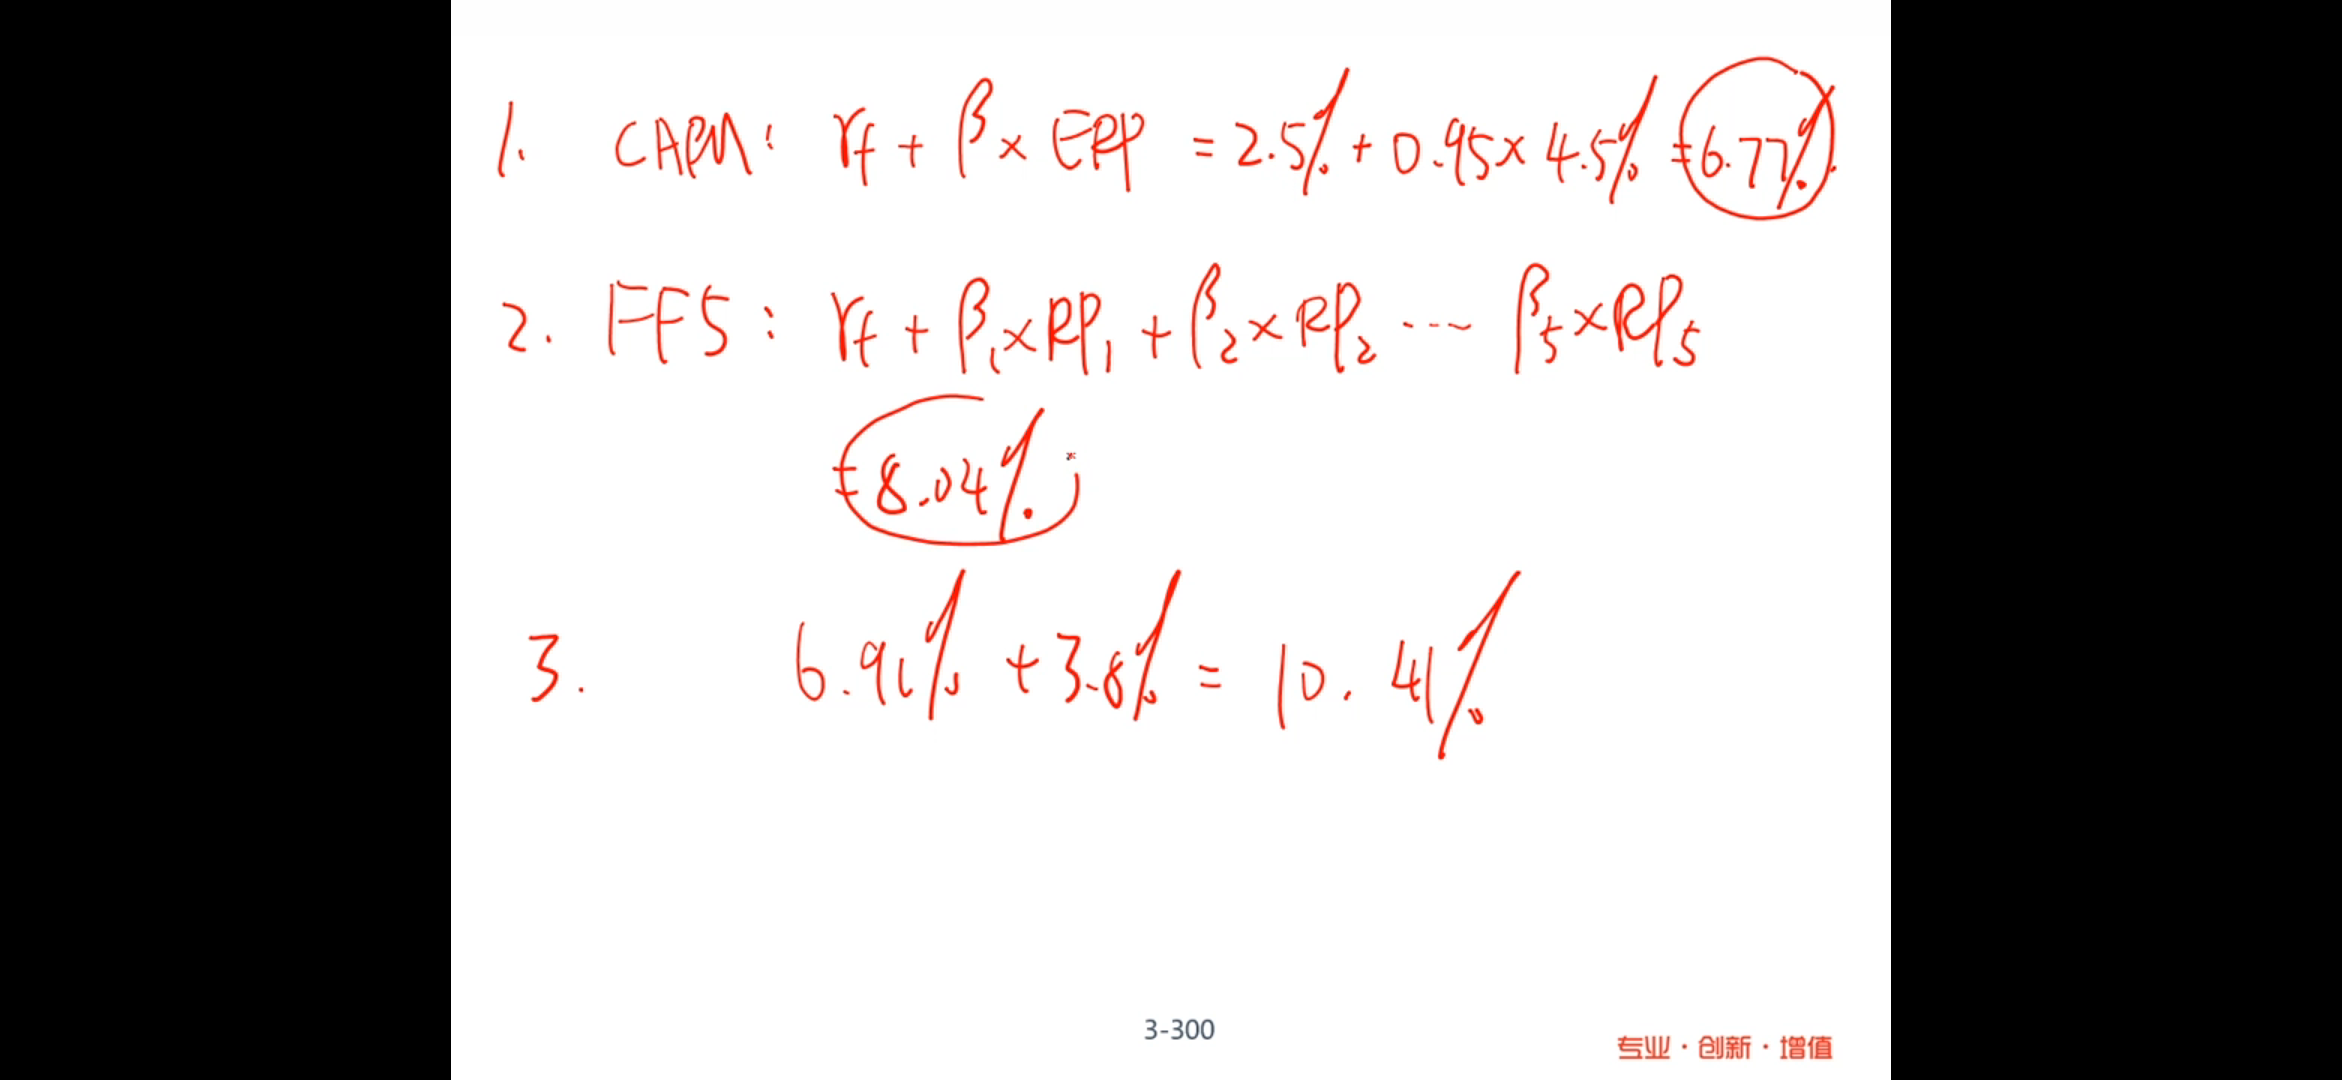 1. CAPM: rf + β × ERP = 2.5% + 0.95 × 4.5% = 6.77%
2. FF5: rf + β₁ × RP₁ + β₂ × RP₂ ... β₅ × RP₅
= 8.04%
3. 6.91% + 3.8% = 10.41%
3-300
专业·创新·增值